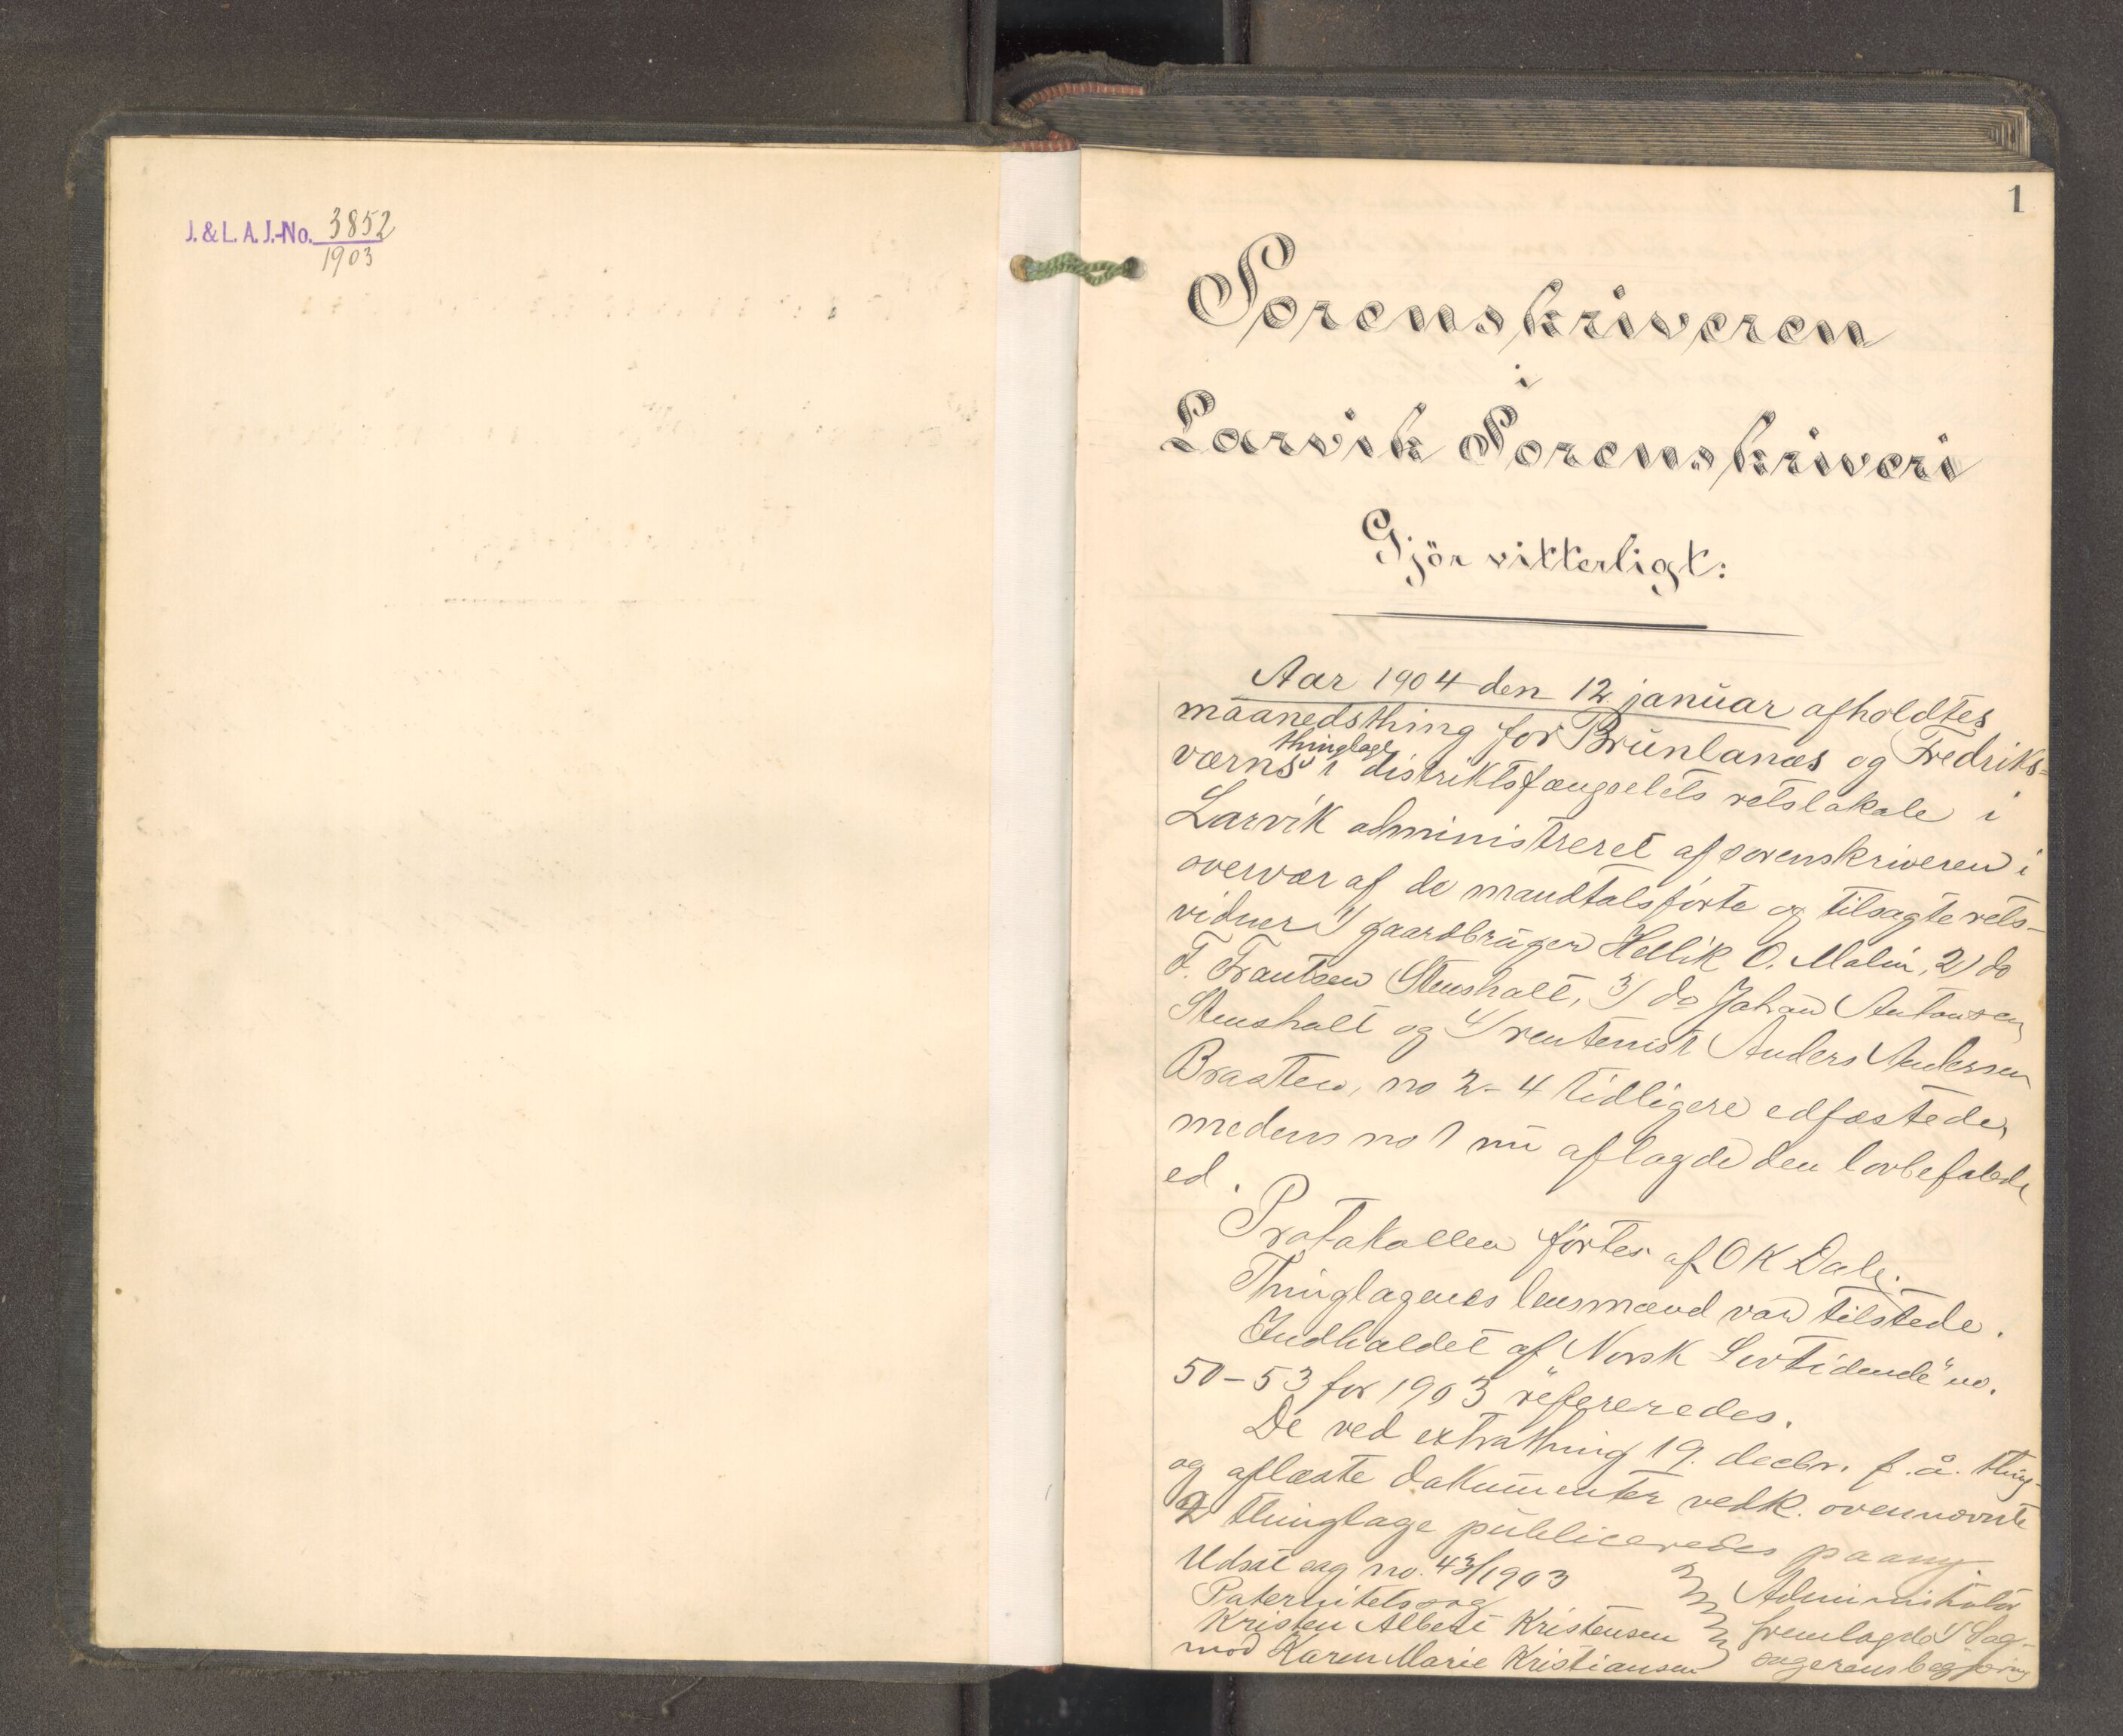 J. & L. A. J.-No. 3852
1903
1
Sorenskriveren
i
Larvik Sorenskriveri
Gjör vitterligt:
Aar 1904 den 12 januar afholdtes
maanedsthing for Brunlanæs og Fredriks-
værns thinglage i distriktsfængselets retslokale i
Larvik administreret af sorenskriveren i
overvær af de mandtalsførte og tilsagte rets-
vidner 1/ gaardbruger Hellik O. Malin, 2/ do
F. Frantsen Stenshalt, 3/ do Johan Antonsen
Stenshalt og 4/ rentenist Anders Andersen
Brasten, no 2-4 tidligere edfæstede,
medens no 1 nu aflagde den lovbefalede
ed.
Protokollen førtes af O K Dale.
Thinglagenes lensmænd var tilstede.
Indholdet af "Norsk Lovtidende" no.
50-53 for 1903 refereredes.
De ved extrathing 19. decbr. f. å. thing-
og aflæste dokumenter vedk. ovennævnte
2 thinglage publiceredes paany.
Udsat sag no. 43/1903
Paternitetssag
Kristen Albert Kristensen
mod Karen Marie Kristiansen
Administrator
fremlagde 1/ Sag-
sagerens begjæring